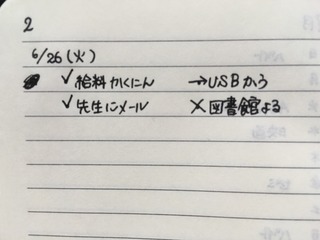 2
6/26(火)
✓給料かくにん →USBかう
✓先生にメール ×図書館よる